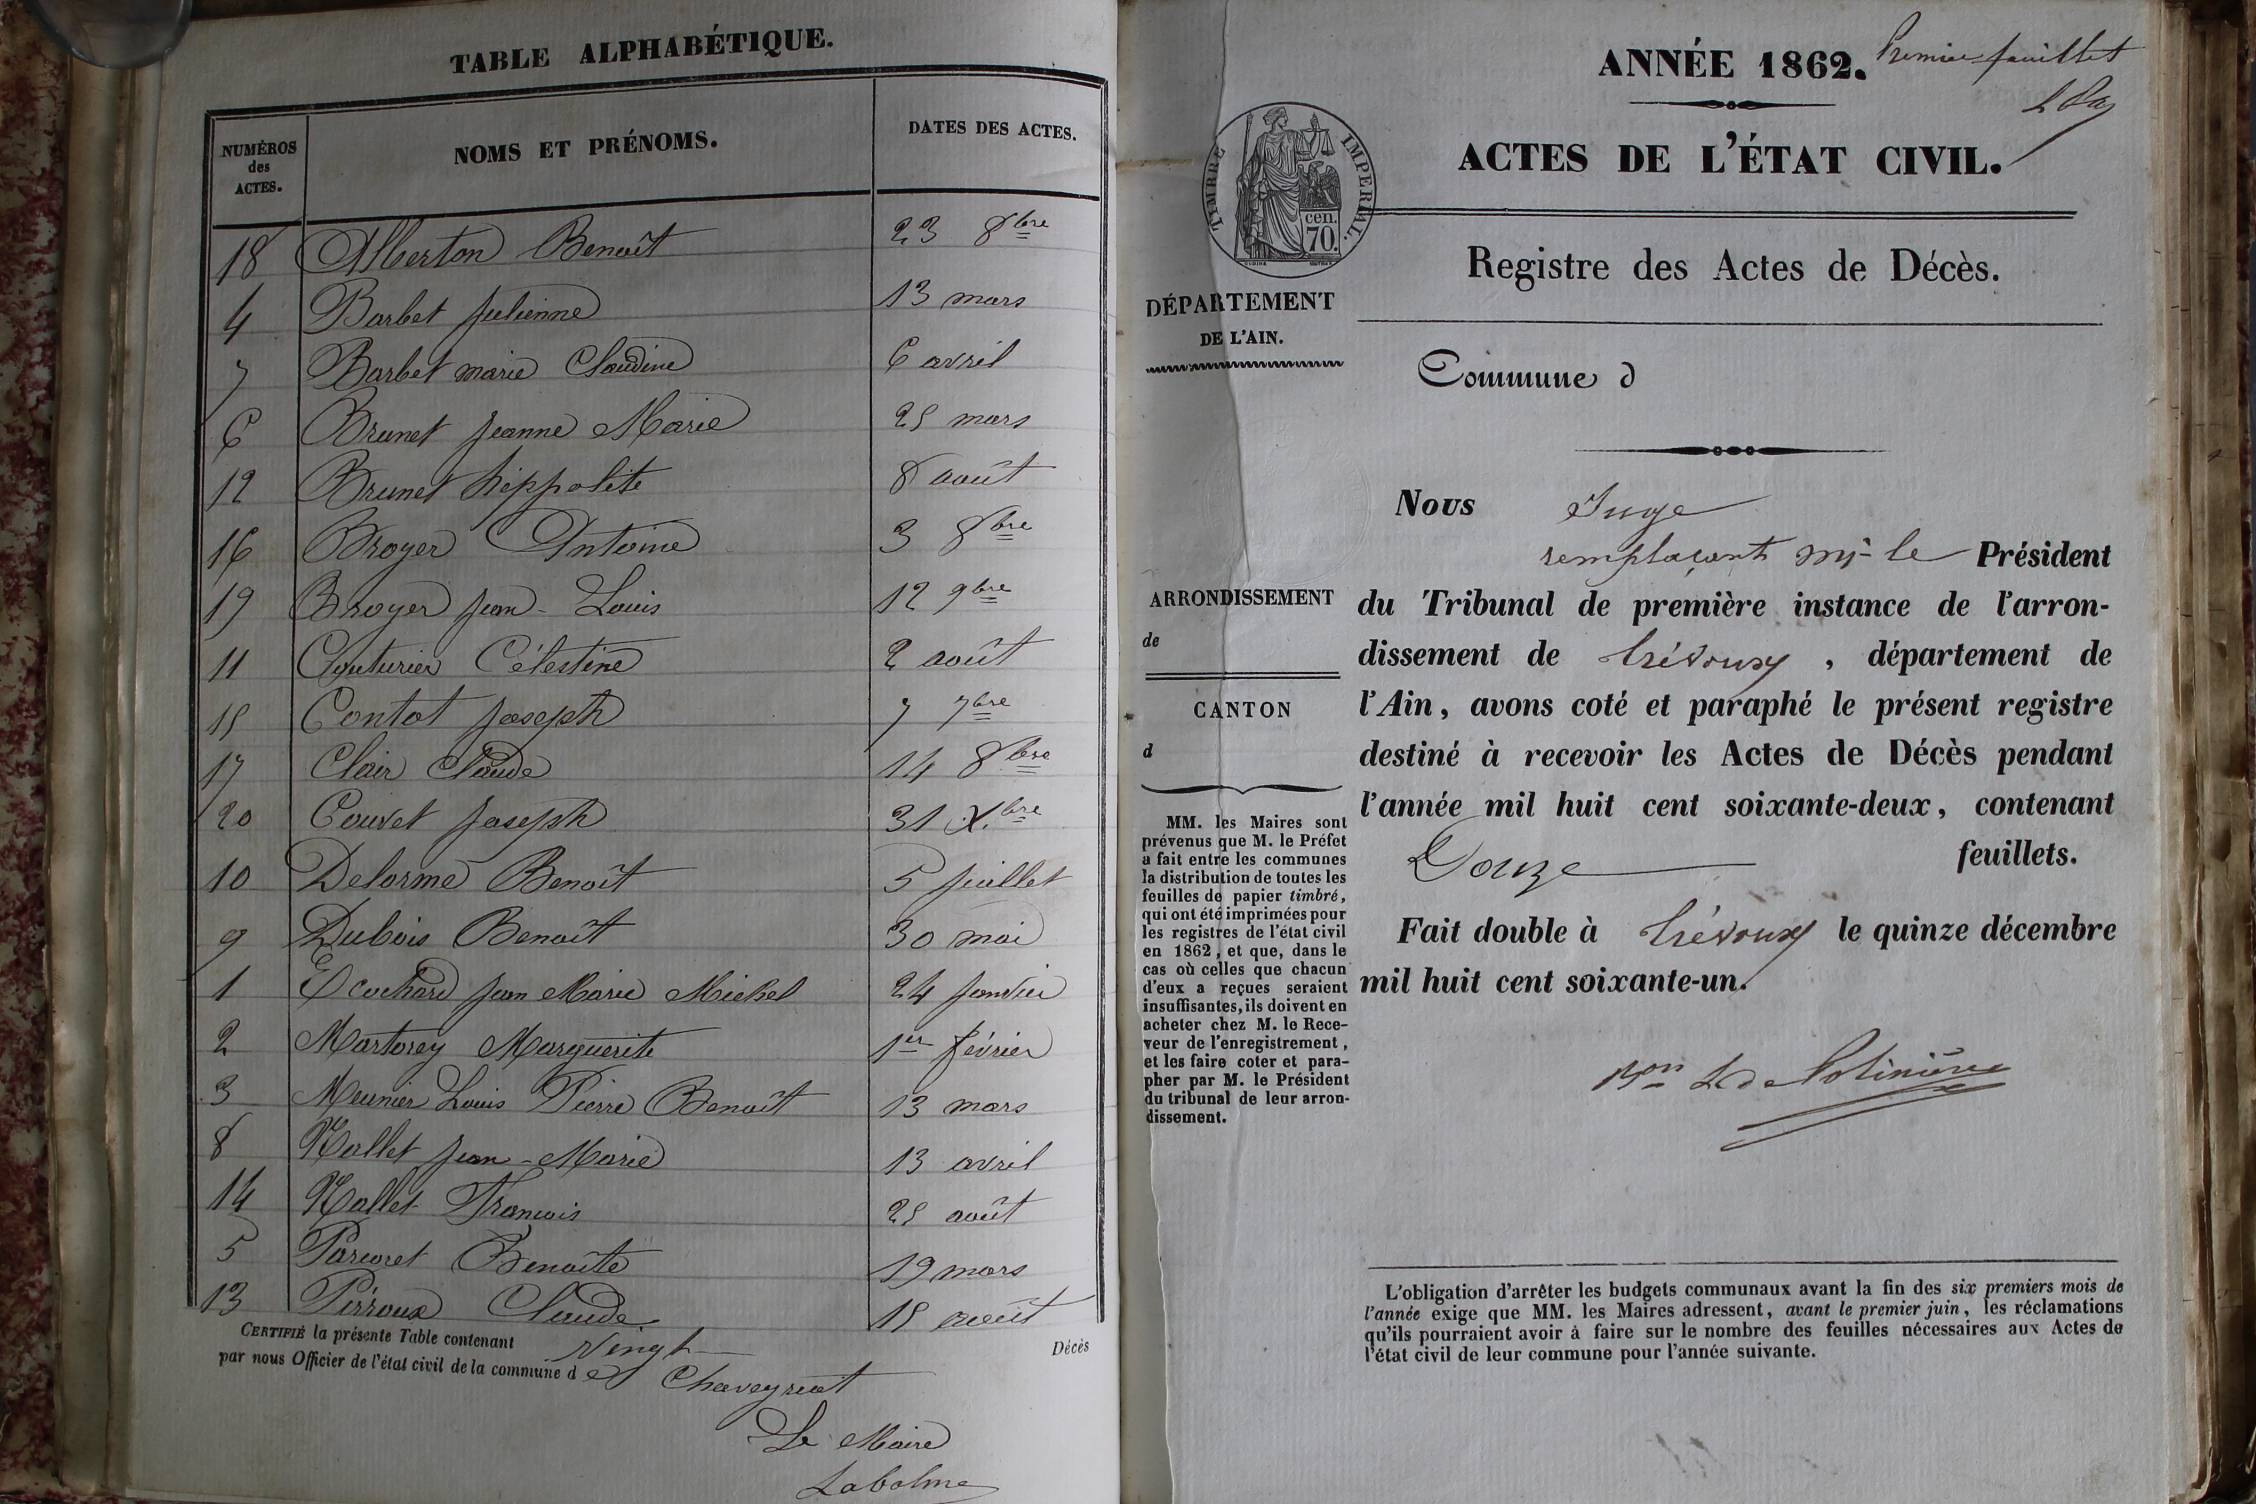 TABLE ALPHABÉTIQUE.
NUMÉROS des ACTES. NOMS ET PRÉNOMS. DATES DES ACTES.
18 Alberton Benoît 23 8bre
4 Barbet Julienne 13 mars
7 Barbet marie Claudine 6 avril
6 Brunet Jeanne Marie 25 mars
12 Brunet hippolite 8 août
16 Broyer Antoine 3 8bre
19 Broyer Jean-Louis 12 9bre
11 Couturier Célestine 2 août
15 Contot Joseph 7 7bre
17 Clair Claude 14 8bre
20 Couvet Joseph 31 Xbre
10 Delorme Benoit 5 juillet
9 Dubois Benoît 30 mai
1 Ecochard Jean Marie Michel 24 Janvier
2 Martorey Marguerite 1er février
3 Meunier Louis Pierre Benoît 13 mars
8 Nallet Jean-Marie 13 avril
14 Nallet François 25 août
5 Benoîte 19 mars
13 Perroux Claude 15 août
CERTIFIÉ la présente Table contenant Vingt Décès
par nous Officier de l'état civil de la commune de Chaveyriat
Le Maire
Labalme
ANNÉE 1862. Premier feuillet
ACTES DE L'ÉTAT CIVIL.
TIMBRE IMPÉRIAL.
cen.
70.
Registre des Actes de Décès.
DÉPARTEMENT
DE L'AIN.
Commune d
ARRONDISSEMENT
de
CANTON
d
MM. les Maires sont
prévenus que M. le Préfet
a fait entre les communes
la distribution de toutes les
feuilles de papier timbré,
qui ont été imprimées pour
les registres de l'état civil
en 1862, et que, dans le
cas où celles que chacun
d'eux a reçues seraient
insuffisantes, ils doivent en
acheter chez M. le Rece-
veur de l'enregistrement,
et les faire coter et para-
pher par M. le Président
du tribunal de leur arron-
dissement.
Nous Juge
remplaçant Mr le Président
du Tribunal de première instance de l'arron-
dissement de Trévoux, département de
l'Ain, avons coté et paraphé le présent registre
destiné à recevoir les Actes de Décès pendant
l'année mil huit cent soixante-deux, contenant
Douze feuillets.
Fait double à Trévoux le quinze décembre
mil huit cent soixante-un.
L'obligation d'arrêter les budgets communaux avant la fin des six premiers mois de
l'année exige que MM. les Maires adressent, avant le premier juin, les réclamations
qu'ils pourraient avoir à faire sur le nombre des feuilles nécessaires aux Actes de
l'état civil de leur commune pour l'année suivante.